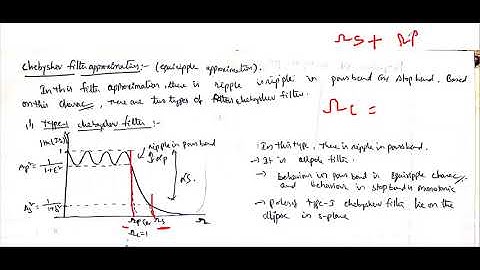 Ωs + Ωp
Chebyshev filter approximation:- (equiripple approximation).
In this filter approximation, there is ripple in passband or stop band. Based
on this charac, there are two types of chebyshev filter.
Ωc =
1) type-1 chebyshev filter:-
|H(jΩ)|
1
ripple in pass band
Ap² = 1/(1+ε²)
As² =
Ωp Ωc Ωs Ω
Ωc=1
In this type, there is ripple in passband.
→ It is all pole filter.
→ behaviour in pass band is equiripple charac
and behaviour in stopband is monotonic
→ poles of type-I chebyshev filter lie on the
ellipse in s-plane